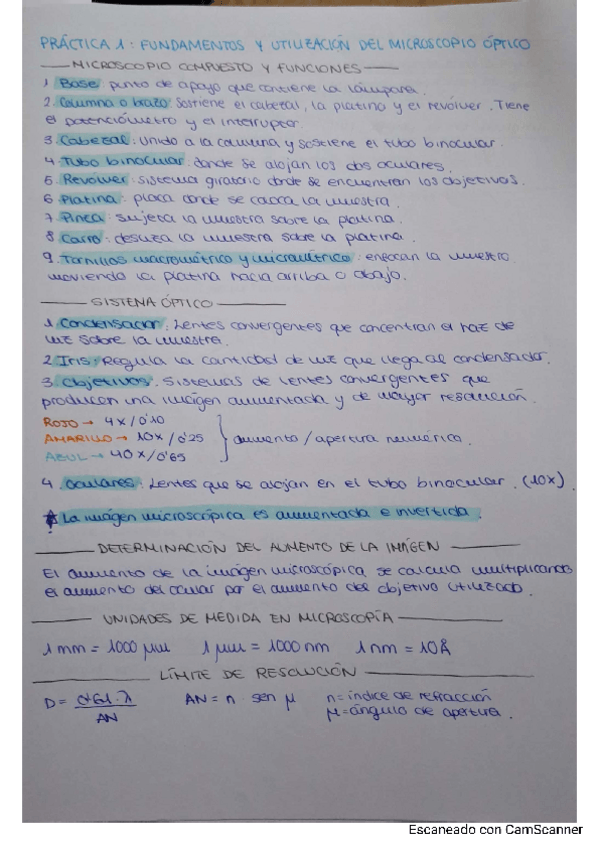 PRÁCTICA 1: FUNDAMENTOS Y UTILIZACIÓN DEL MICROSCOPIO ÓPTICO
MICROSCOPIO COMPUESTO Y FUNCIONES
1 Base: punto de apoyo que contiene la lámpara.
2. Columna o brazo: Sostiene el cabezal, la platina y el revólver. Tiene
el potenciómetro y el interruptor.
3. Cabezal: Unido a la columna y sostiene el tubo binocular.
4. Tubo binocular: donde se alojan los dos oculares.
5. Revólver: sistema giratorio donde se encuentran los objetivos.
6 Platina: placa donde se coloca la muestra.
7 Pinza: sujeta la muestra sobre la platina.
8 Carro: desliza la muestra sobre la platina.
9. Tornillos macrométrico y micrométrico: enfocan la muestra
moviendo la platina hacia arriba o abajo.
SISTEMA ÓPTICO
1. Condensador: Lentes convergentes que concentran el haz de
luz sobre la muestra.
2 Iris: Regula la cantidad de luz que llega al condensador.
3. Objetivos: Sistemas de lentes convergentes que
producen una imágen aumentada y de mayor resolución.
ROJO → 4x/0'10
AMARILLO → 10x/0'25 } aumento/apertura numérica.
AZUL → 40x/0'65
4. Oculares: Lentes que se alojan en el tubo binocular. (10x).
* La imágen microscópica es aumentada e invertida.
DETERMINACIÓN DEL AUMENTO DE LA IMÁGEN
El aumento de la imágen microscópica se calcula multiplicando
el aumento del ocular por el aumento del objetivo utilizado.
UNIDADES DE MEDIDA EN MICROSCOPÍA
1 mm = 1000 μm 1 μm = 1000 nm 1 nm = 10Å
LÍMITE DE RESOLUCIÓN
D = 0'61·λ / AN AN = n · sen μ n = índice de refracción
μ = ángulo de apertura.
Escaneado con CamScanner